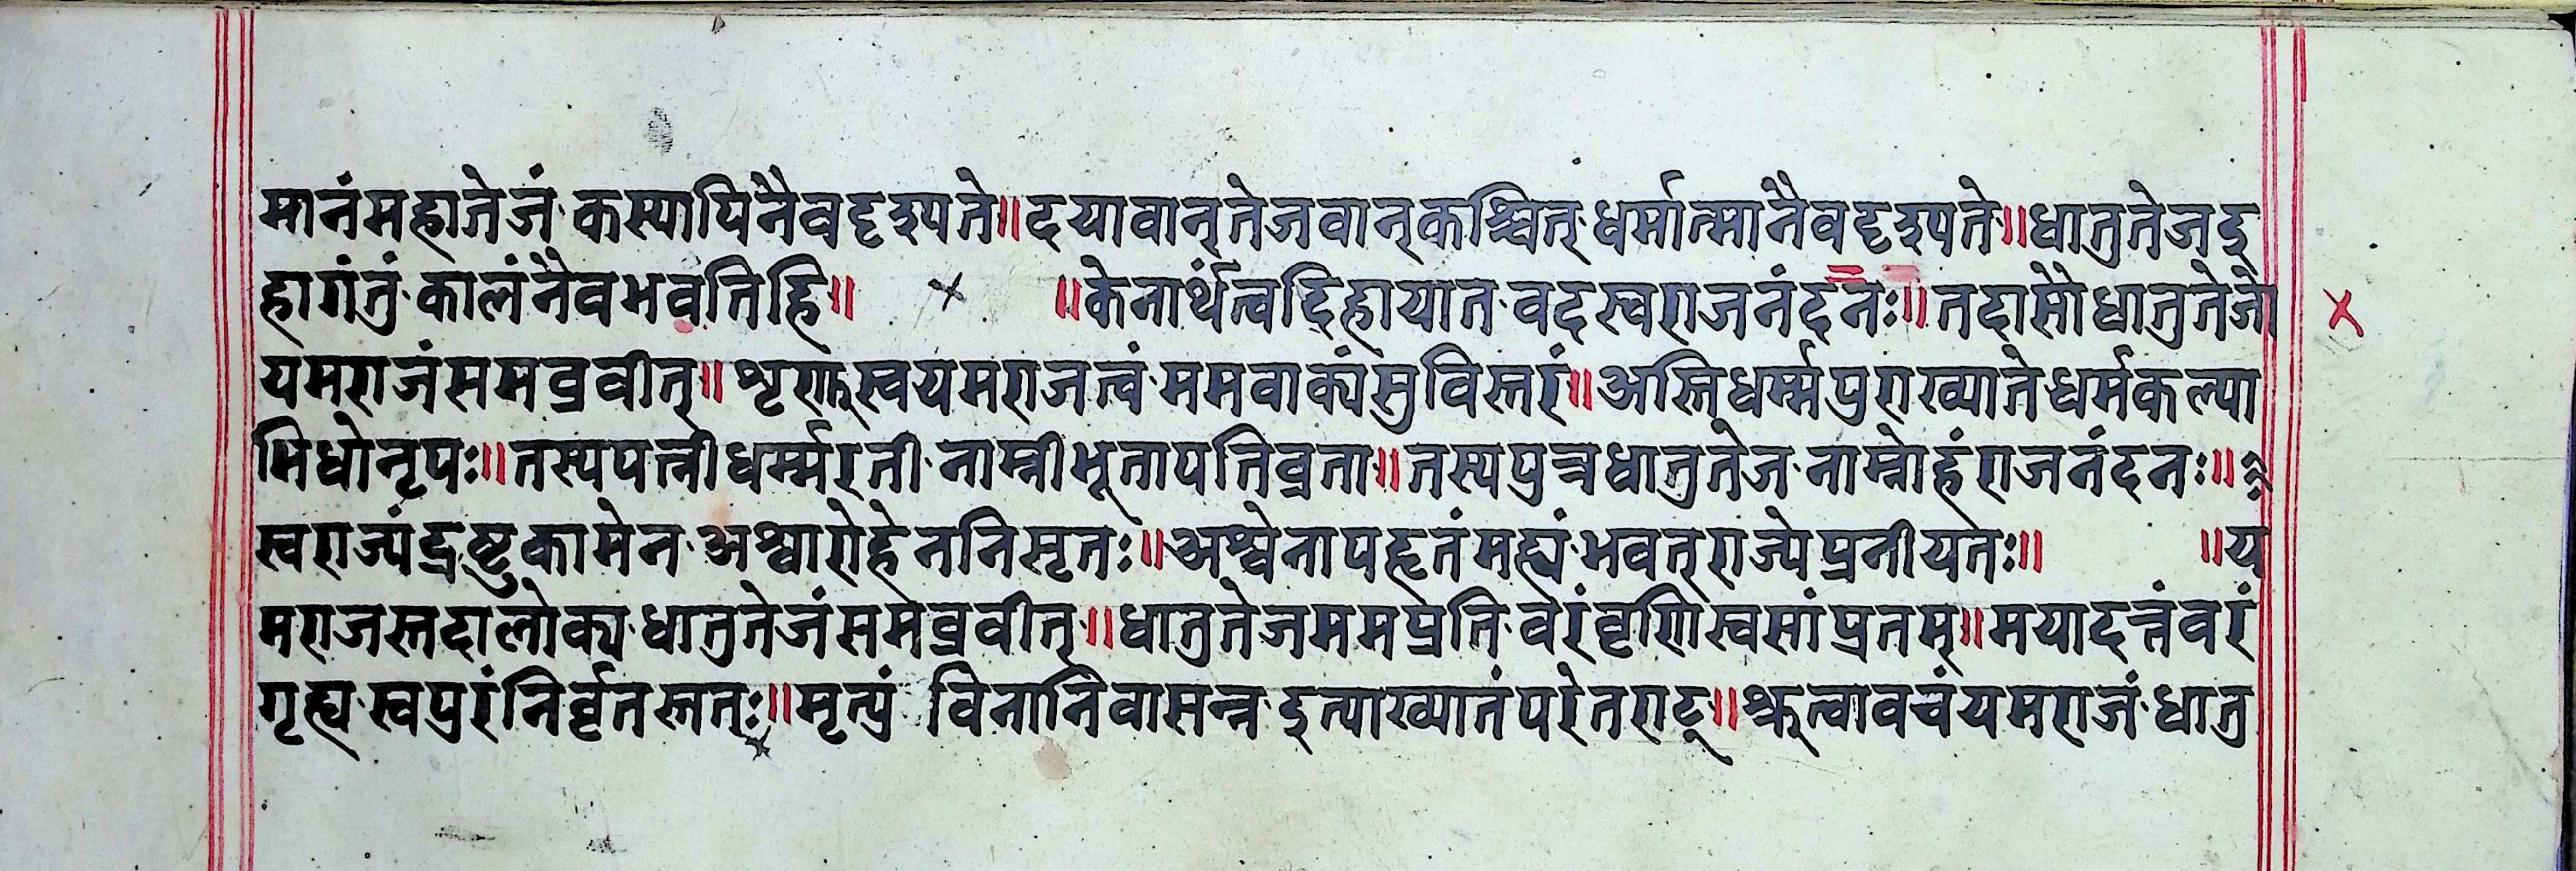 मानंमहातेजं·कस्यापिनैवदृश्यते॥दयावान्तेजवान्कश्चित्·धर्मात्मानैवदृश्यते॥धातुतेजइ
हागंतुं·कालंनैवभवतिहि॥ × ॥केनार्थंत्वदिहायात·वदस्वराजनंदनः॥तदासौधातुतेजो ×
यमराजंसमब्रवीत्॥शृणुस्वयमराजत्वं·ममवाक्यंसुविस्तरं॥अस्तिधर्म्मपुराख्याते·धर्मकल्या
भिधोनृपः॥तस्यपत्नीधर्म्मरती·नाम्नीभूतापतिव्रता॥तस्यपुत्रधातुतेज·नाम्नोहंराजनंदनः॥
स्वराज्यंद्रष्टुकामेन·अश्वारोहेननिसृतः॥अश्वेनापहृतंमह्यं·भवत्राज्येप्रनीयतः॥ ॥य
मराजस्तदालोक्य·धातुतेजंसमब्रवीत्॥धातुतेजममप्रति·वरंवृणिस्वसांप्रतम्॥मयादत्तंवरं
गृह्य·स्वपुरंनिर्वृतस्ततः॥मृत्युं विनानिवासन्न·इत्याख्यातंपरेतराट्॥श्रुत्वावचंयमराजं·धातु